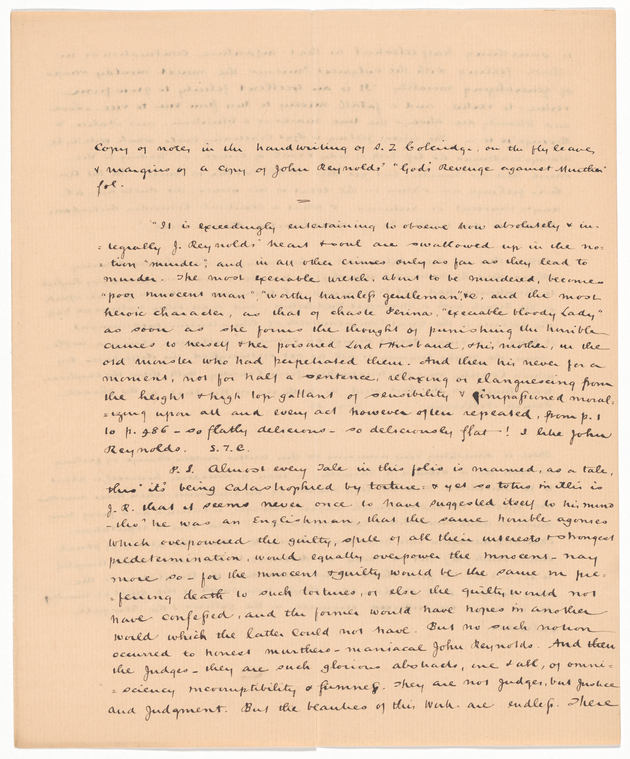 Copy of notes in the handwriting of S. T. Coleridge, on the fly leaves
& margins of a copy of John Reynolds' "God's Revenge against Murther"
fol.
"It is exceedingly entertaining to observe how absolutely & in-
=tegrally J. Reynolds' heart & soul are swallowed up in the no-
=tion "murder", and in all other crimes only as far as they lead to
murder. The most execrable wretch, about to be murdered, becomes
"poor innocent man", "worthy harmless gentleman", &c, and the most
heroic character, as that of chaste Perina, "execrable bloody Lady"
as soon as she forms the thought of punishing the horrible
crimes to herself & her poisoned Lord & Husband, & his mother, in the
old monster who had perpetrated them. And then his never for a
moment, not for half a sentence, relaxing or elanguescing from
the height & high top-gallant of sensibility & impassioned moral-
=izing upon all and every act however often repeated, from p. 1
to p. 486 – so flatly delicious – so deliciously flat! I like John
Reynolds. S. T. C.
P.S. Almost every Tale in this folio is marred, as a tale,
thro' its being catastrophied by torture: & yet so totus in illis is
J. R. that it seems never once to have suggested itself to his mind
– tho' he was an Englishman, that the same horrible agonies
which overpowered the guilty, spite of all their interests & strongest
predetermination, would equally overpower the innocent – nay
more so – for the innocent & guilty would be the same in pre-
=ferring death to such tortures, or else the guilty would not
have confessed, and the former would have hopes in another
world which the latter could not have. But no such notion
occurred to honest murthero-maniacal John Reynolds. And then
the Judges – they are such glorious abstracts, one & all, of omni-
=sciency incorruptibility & firmness. They are not Judges, but Justice
and Judgment. But the beauties of this Work are endless. There